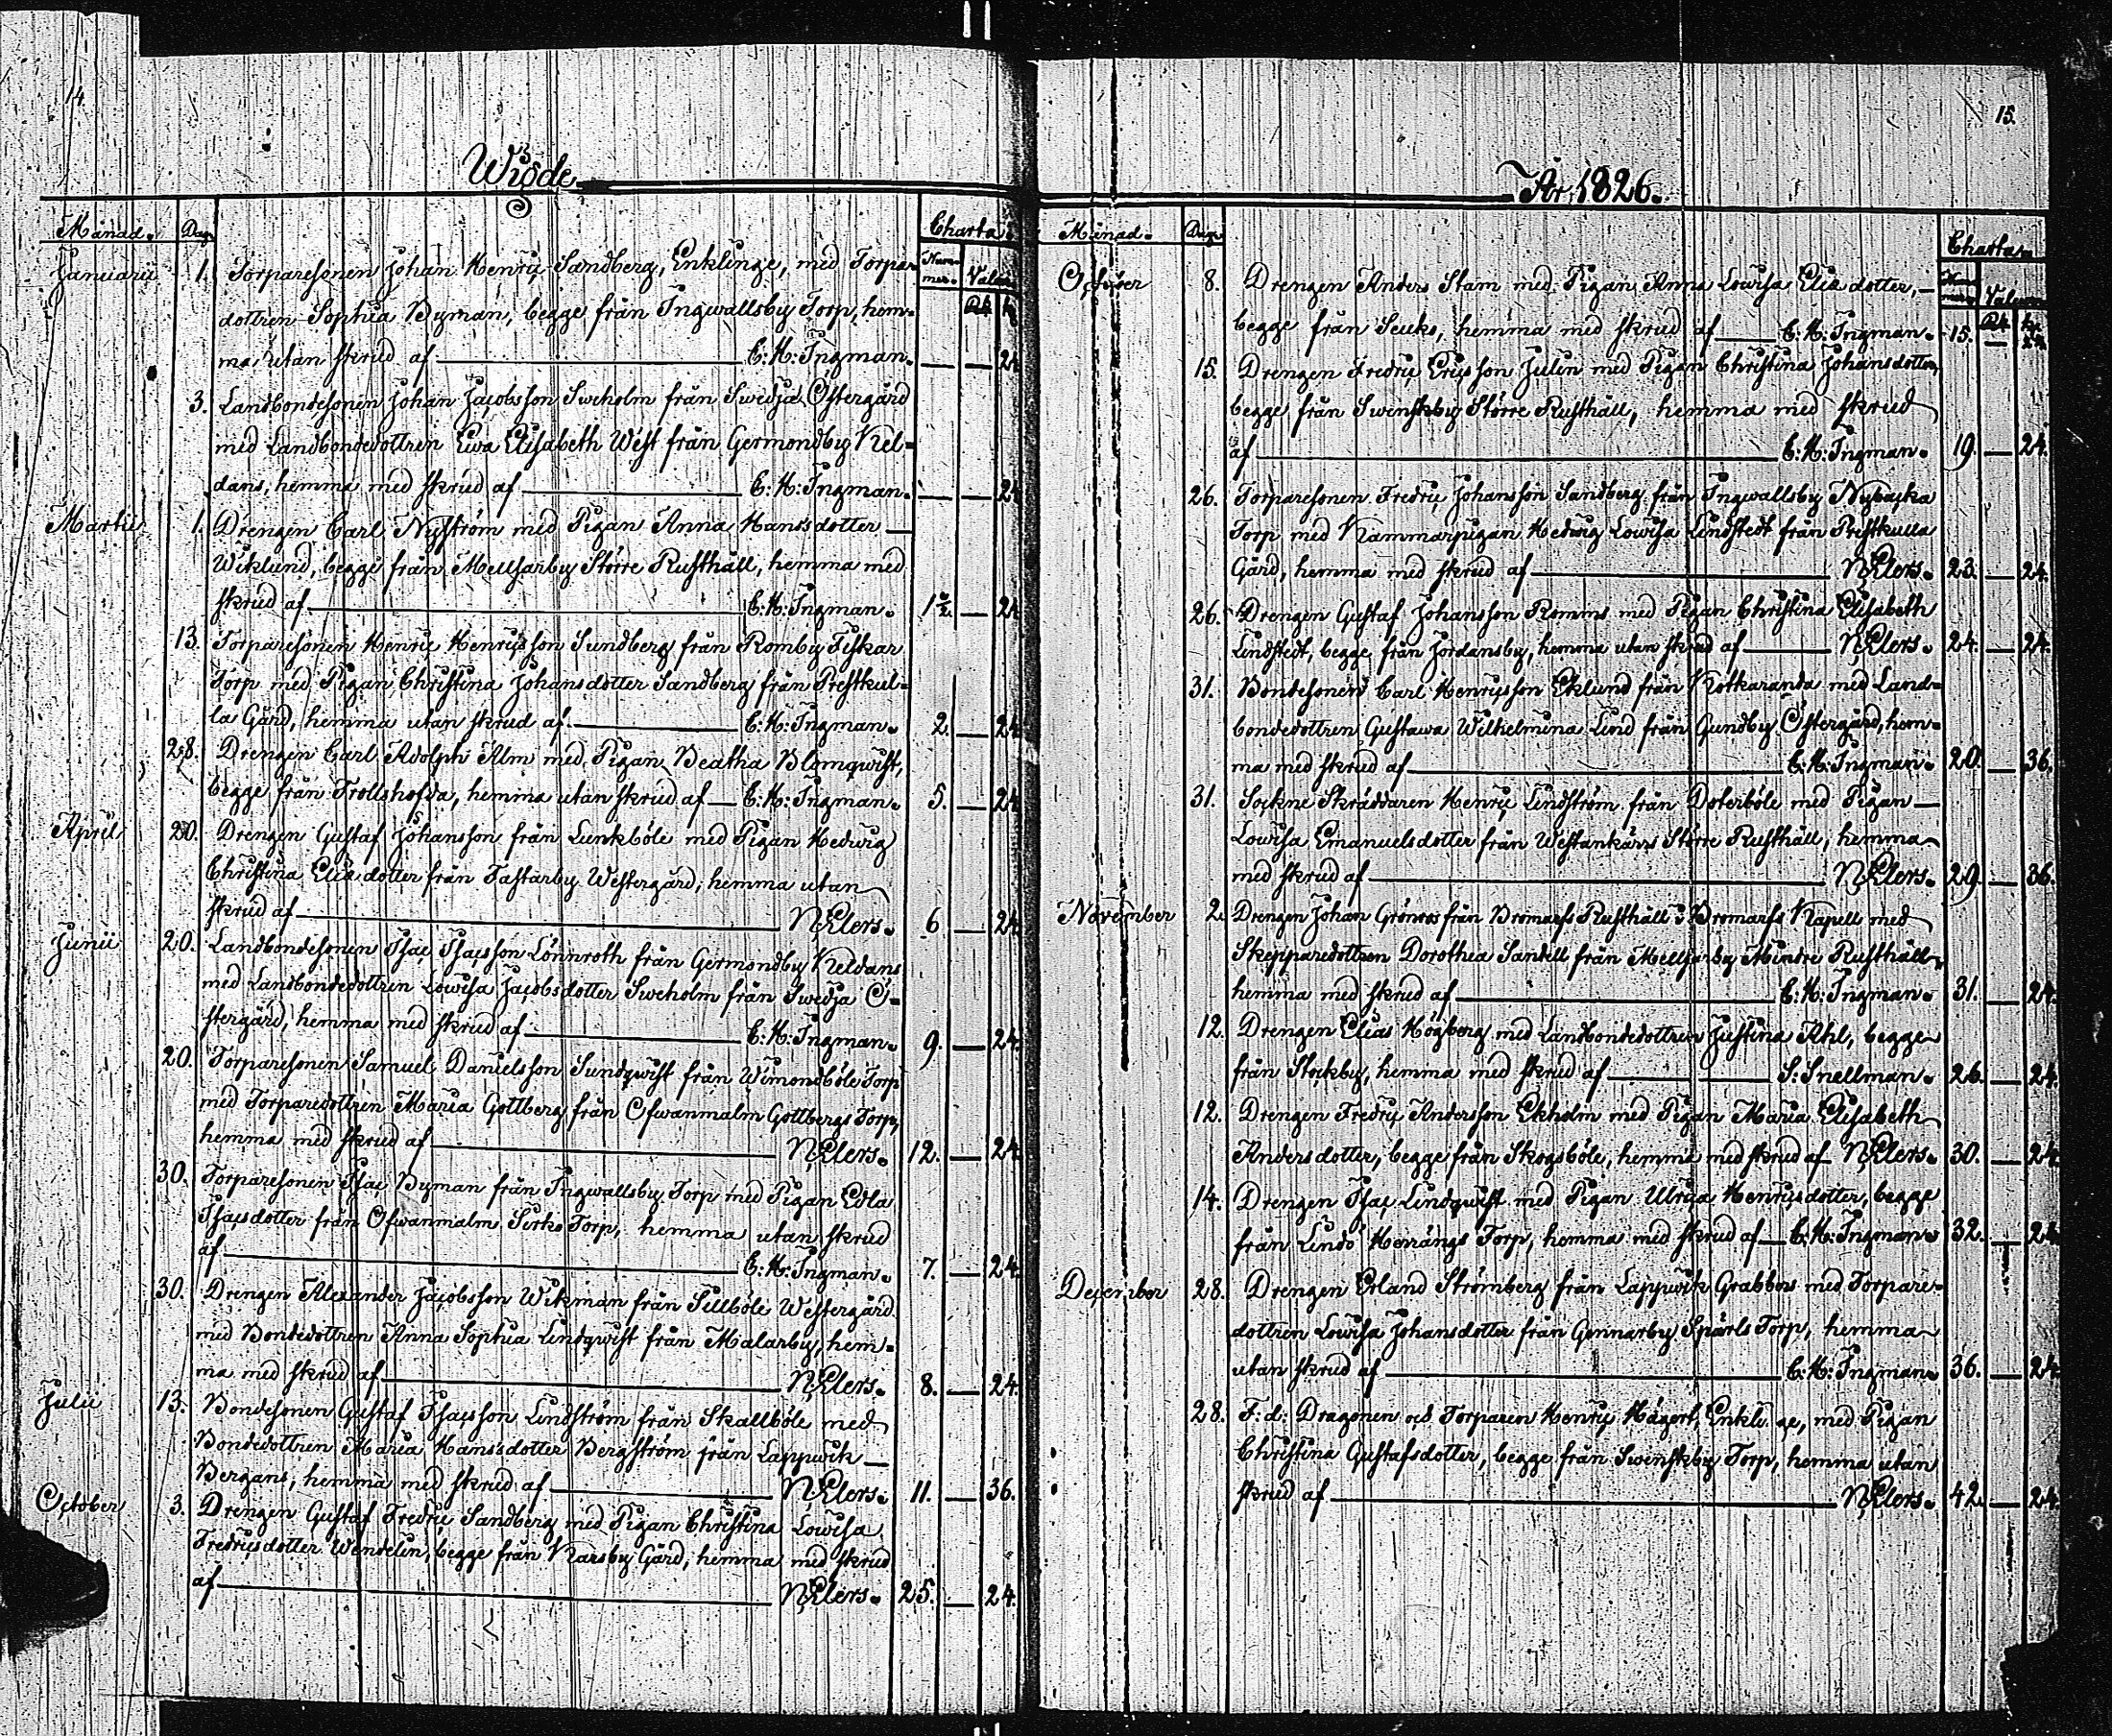 14
Wigde
Månad. Dag. Charta.
Num-
mer. Valeur
Januarii 1. Torparesonen Johan Henric Sandberg, Enklinge, med Torpare-
dottren Sophia Byman, begge från Ingwallsby Torp, hem-
ma utan skrud af E: H: Ingman. — — 24
3. Landbondesonen Johan Jacobsson Sweholm från Swedja Östergård
med Landbondedottren Ewa Elisabeth Wist från Germondby Kel-
dans, hemma med skrud af E: H: Ingman. — — 24
Martii 1. Drengen Carl Nyström med Pigan Anna Hansdotter —
Wiklund, begge från Mellsarby Större Rusthåll, hemma med
skrud af E: H: Ingman. — 24
13. Torparesonen Henric Henricsson Sundberg från Romby Fiskar
Torp med Pigan Christina Johansdotter Sandberg från Prestkul-
la Gård, hemma utan skrud af E: H: Ingman. 2. — 24
28. Drengen Carl Adolph Alm med Pigan Beatha Blomqwist,
begge från Trollshofda, hemma utan skrud af E: H: Ingman. 5. — 24
April 20. Drengen Gustaf Johansson från Lunkböle med Pigan Hedwig
Christina Eliæ dotter från Tastarby Westergård, hemma utan
skrud af N. Elers. 6 — 24
Junii 20. Landbondesonen Isac Isacsson Lönnroth från Germondby Keldans
med Landbondedottren Lowisa Jacobsdotter Sweholm från Swedja Ö-
stergård, hemma med skrud af E: H: Ingman. 9. — 24.
20. Torparesonen Samuel Danielsson Sundqwist från Wimondböle Torp
med Torparedottren Maria Gottberg från Ofwanmalm Gottbergs Torp,
hemma med skrud af N. Elers. 12. — 24
30. Torparesonen Isac Byman från Ingwallsby Torp med Pigan Edla
Isacsdotter från Ofwanmalm Sirks Torp, hemma utan skrud
af E: H: Ingman. 7. — 24.
30. Drengen Alexander Jacobsson Wikman från Sillböle Westergård
med Bondedottren Anna Sophia Lindqwist från Malarby, hem-
ma med skrud af N. Elers. 8. — 24.
Julii 13. Bondesonen Gustaf Isacsson Lindström från Skallböle med
Bondedottren Maria Hansdotter Bergström från Lappwik —
Bergans, hemma med skrud af N. Elers. 11. — 36.
October 3. Drengen Gustaf Fredric Sandberg med Pigan Christina Lowisa
Fredricsdotter Wendelin, begge från Karsby Gård, hemma med skrud
af N. Elers. 25. — 24.
15.
År 1826.
Månad. Dag. Charta.
Valeur
October 8. Drengen Anders Stam med Pigan Anna Lowisa Eliæ dotter, —
begge från Seuks, hemma med skrud af E: H: Ingman. 15. — 24
15. Drengen Fredric Ericsson Julin med Pigan Christina Johansdotter,
begge från Swenskby Större Rusthåll, hemma med skrud
af E: H: Ingman. 19. — 24.
26. Torparesonen Fredric Johansson Sandberg från Ingwallsby Nybacka
Torp med Kammarpigan Hedwig Lowisa Lindstedt från Prestkulla
Gård, hemma med skrud af N. Elers. 23. — 24.
26. Drengen Gustaf Johansson Romms med Pigan Christina Elisabeth
Lindstedt, begge från Jordansby, hemma utan skrud af N. Elers. 24. — 24.
31. Bondesonen Carl Henricsson Eklund från Kotkaranda med Land-
bondedottren Gustawa Wilhelmina Lind från Gundby Östergård, hem-
ma med skrud af E: H: Ingman. 20. — 36.
31. Sockne Skräddaren Henric Lindström från Dotterböle med Pigan —
Lowisa Emanuelsdotter från Westankärrs Större Rusthåll, hemma
med skrud af N. Elers. 29. — 36.
November 2. Drengen Johan Grönros från Bromarfs Rusthåll i Bromarfs Kapell med
Skepparedottren Dorothea Sandell från Mellsarby Mindre Rusthåll,
hemma med skrud af E: H: Ingman. 31. — 24.
12. Drengen Elias Högberg med Landbondedottren Justina Ahl, begge
från Stockby, hemma med skrud af S: Snellman. 26. — 24.
12. Drengen Fredric Andersson Ekholm med Pigan Maria Elisabeth
Andersdotter, begge från Skogsböle, hemma med skrud af N. Elers. 30. — 24
14. Drengen Isac Lindqwist med Pigan Ulrica Henricsdotter, begge
från Lindö Herrängs Torp, hemma med skrud af E: H: Ingman. 32. — 24
December 28. Drengen Erland Strömberg från Lappwik Grabbors med Torpare-
dottren Lowisa Johansdotter från Gennarby Spärls Torp, hemma
utan skrud af E: H: Ingman. 36. — 24
28. F: d: Dragonen och Torparen Henric Hägert, Enkling, med Pigan
Christina Gustafsdotter, begge från Swenskby Torp, hemma utan
skrud af N. Elers. 42. — 24.